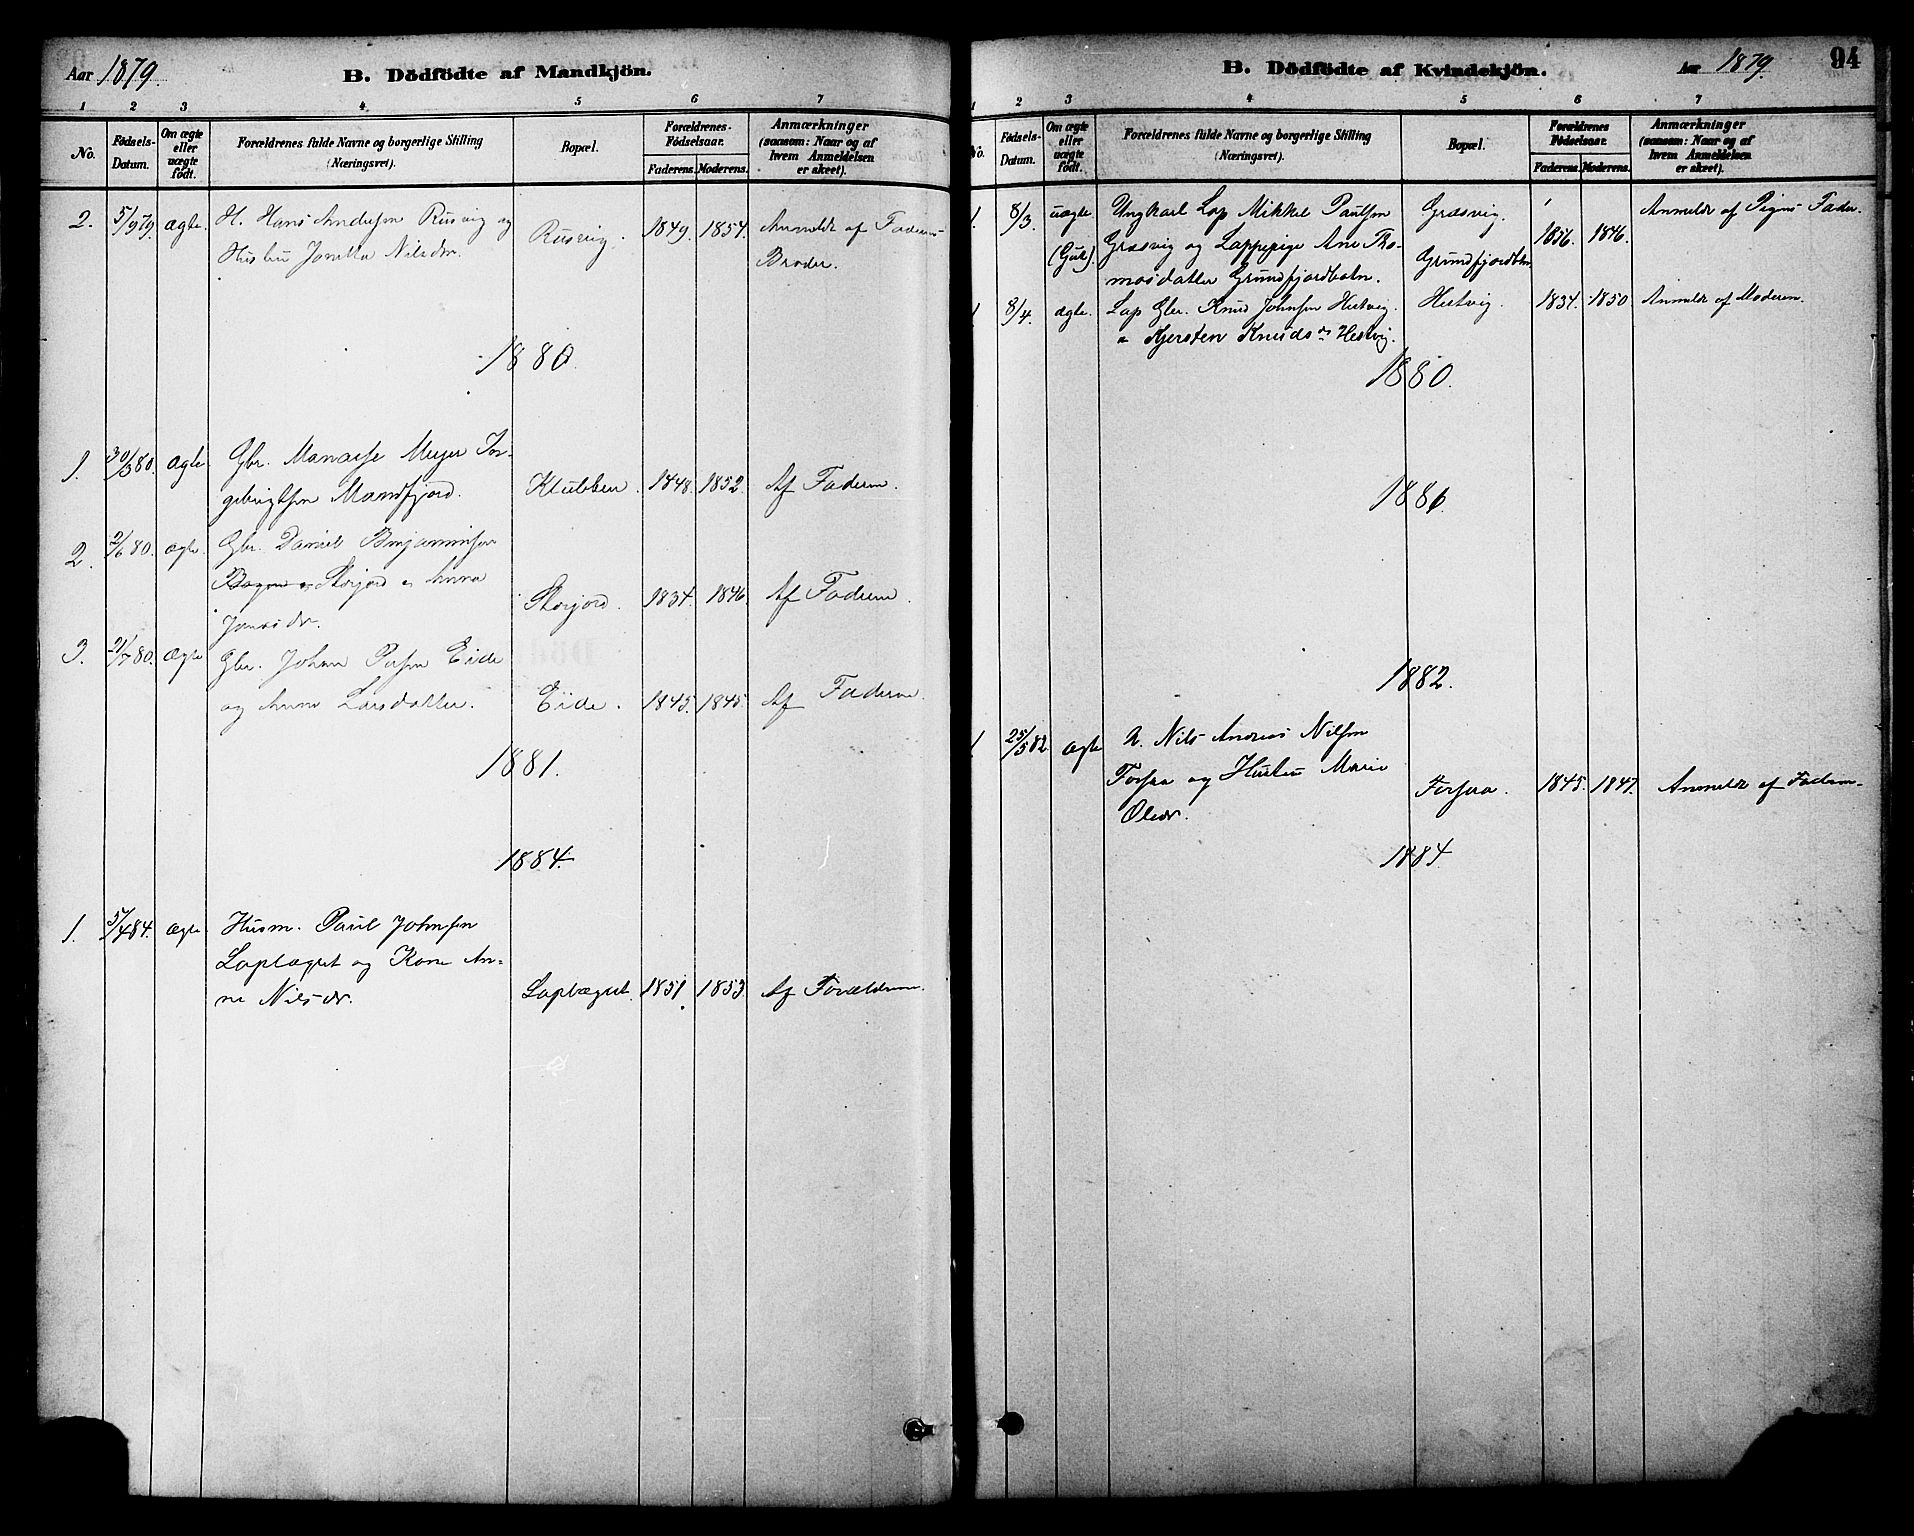 Aar 1879.
B. Dödfödte af Mandkjön.
1 2 3 4 5 6 7
No.
Födsels-
Datum.
Om ægte
eller
uægte
födt.
Forældrenes fulde Navne og borgerlige Stilling
(Næringsvei).
Bopæl.
Forældrenes
Födselsaar.
Faderens. Moderens.
Anmærkninger
(saasom: Naar og af
hvem Anmeldelsen
er skeet).
2. 5/9 79. ægte. H. Hans Andersen Rusvig og
Hustru Nilsdr.
Rusvig. 1849. 1854. Anmeldt af Faderens
Broder.
1880.
1. 30/3 80. ægte Gbr. Manasse Meyer In-
gebrigtsen Mandfjord.
Klubben. 1848. 1852. Af Faderen.
2. 2/6 80. ægte. Gbr. Daniel Benjaminsen
Storjord Anna
Jonas dr.
Storjord. 1834. 1846. Af Faderen.
3. 21/7 80. ægte Gbr. Johan Eide
og Anna Larsdatter.
Eide. 1845. 1845. Af Faderen.
1881.
1884.
1. 5/4 84. ægte Husm. Paul Johnsen
Laplægret og Kone An-
ne Nilsdr.
Laplægret. 1851. 1853. Af Forældrene.
B. Dödfödte af Kvindekjön.
Aar 1879
94
1 2 3 4 5 6 7
No.
Födsels-
Datum.
Om ægte
eller
uægte
födt.
Forældrenes fulde Navne og borgerlige Stilling
(Næringsvei).
Bopæl.
Forældrenes
Födselsaar.
Faderens. Moderens.
Anmærkninger
(saasom: Naar og af
hvem Anmeldelsen
er skeet).
1. 8/3. uægte. Ungkarl Lap Mikkel Paulsen Græsvig. 1856. 1846. Anmeldt af Pigens Fader.
Græsvig og Lappepige Ane Tho-
masdatter Grundfjordbotn. Grundfjordbotn
1. 8/4. ægte. Lap Gbr. Knud Johnsen Hestvig. Hestvig. 1834. 1850 Anmeldt af Moderen.
Kjersten Knuds dr Hestvig.
1880.
1881.
1882.
1 25/5 82 ægte Nils Andreas Nilsen
Forsaa og Hustru Marie
Olsdr.
Forsaa. 1845. 1847. Anmeldt af Faderen.
1884.